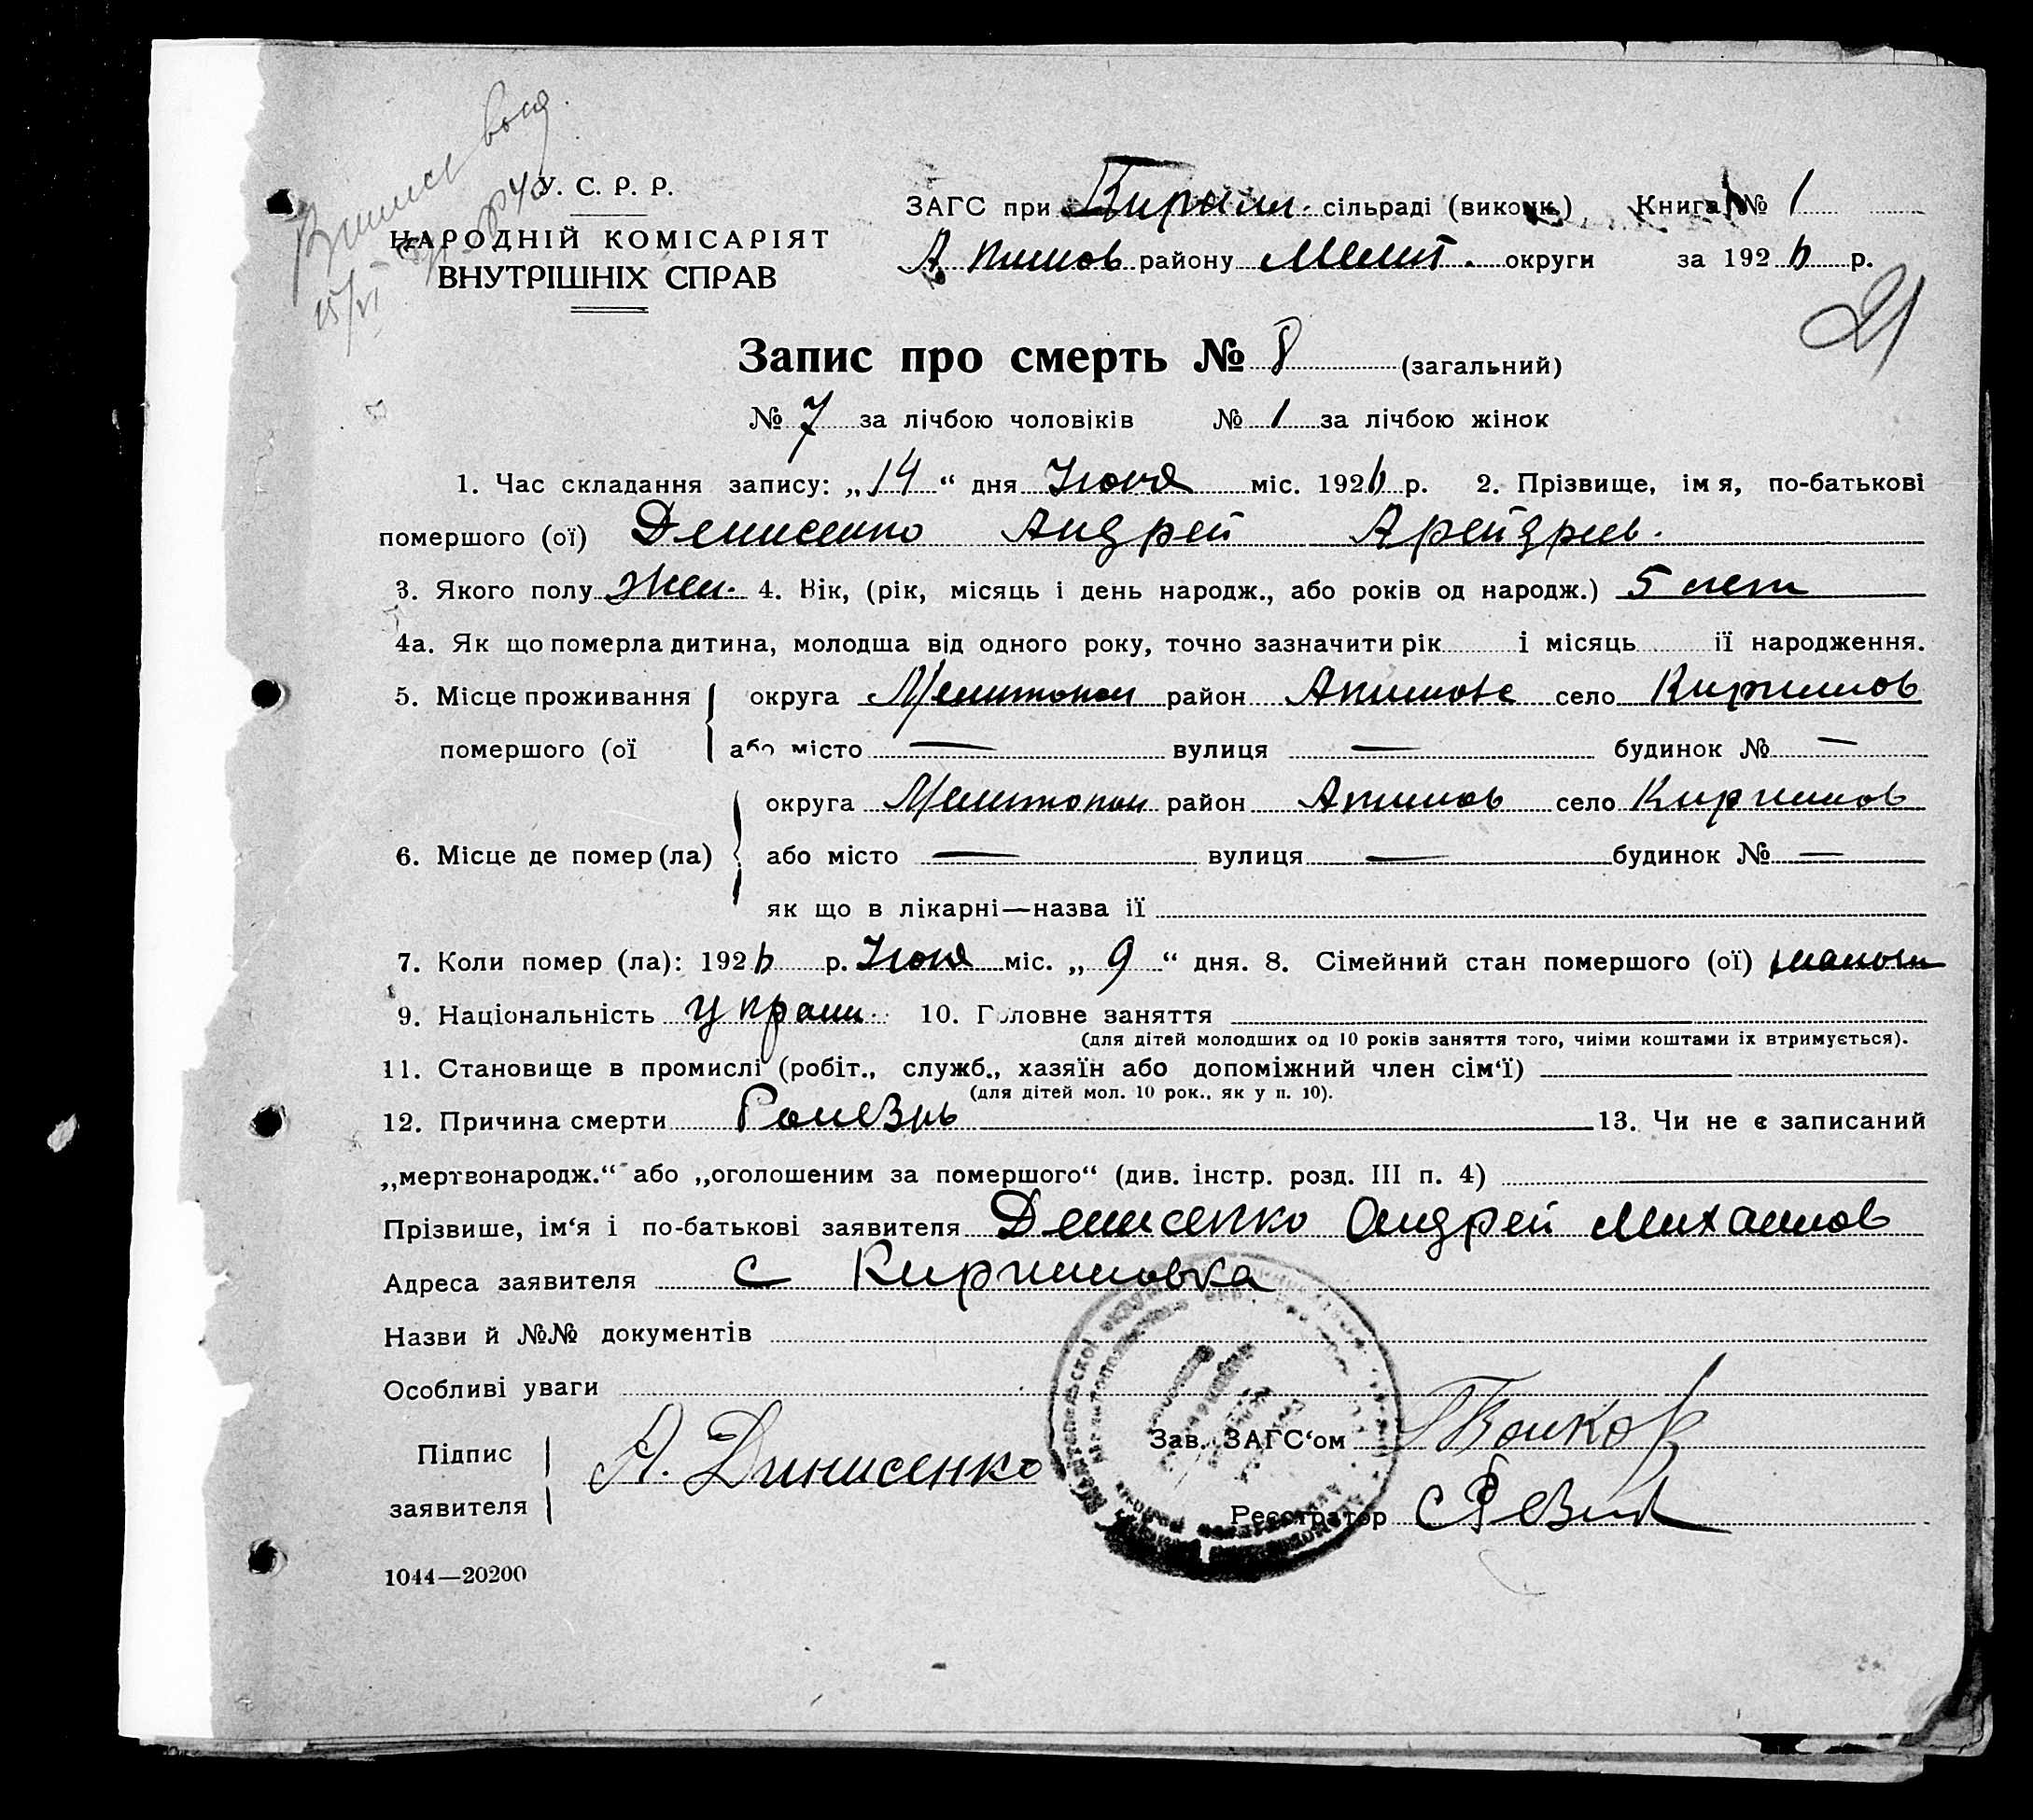 У. С. Р. Р.
НАРОДНІЙ КОМІСАРІЯТ
ВНУТРІШНІХ СПРАВ
ЗАГС при сільраді (виконк.) Книга № 1
Акимов району Мелит. округи за 1926 р.
21
Запис про смерть № 8 (загальний)
№ 7 за лічбою чоловіків № 1 за лічбою жінок
1. Час складання запису: „14“ дня Июня міс. 1926 р. 2. Прізвище, імя, по-батькові
помершого (ої) Денисенко Андрей
3. Якого полу Жен. 4. Вік, (рік, місяць і день народж., або років од народж.) 5 лет
4а. Як що померла дитина, молодша від одного року, точно зазначити рік і місяць її народження.
5. Місце проживання округа Мелитопол район Акимовс село Кирилов
помершого (ої або місто — вулиця — будинок № —
округа Мелитопол район Акимов село Кирилов
6. Місце де помер (ла) або місто — вулиця — будинок № —
як що в лікарні—назва її
7. Коли помер (ла): 1926 р. Июня міс. „9“ дня. 8. Сімейний стан помершого (ої)
9. Національність Украин. 10. Головне заняття
(для дітей молодших од 10 років заняття того, чиїми коштами їх втримується).
11. Становище в промислі (робіт., служб., хазяїн або допоміжний член сім‘ї)
(для дітей мол. 10 рок., як у п. 10).
12. Причина смерти Болезнь 13. Чи не є записаний
„мертвонародж.“ або „оголошеним за помершого“ (див. інстр. розд. III п. 4)
Прізвише, ім‘я і по-батькові заявителя Денисенко Андрей Михаилов
Адреса заявителя с Кирилловка
Назви й №№ документів
Особливі уваги
Підпис
заявителя А. Динисенко
Зав. ЗАГС‘ом
Реєстратор
1044—20200